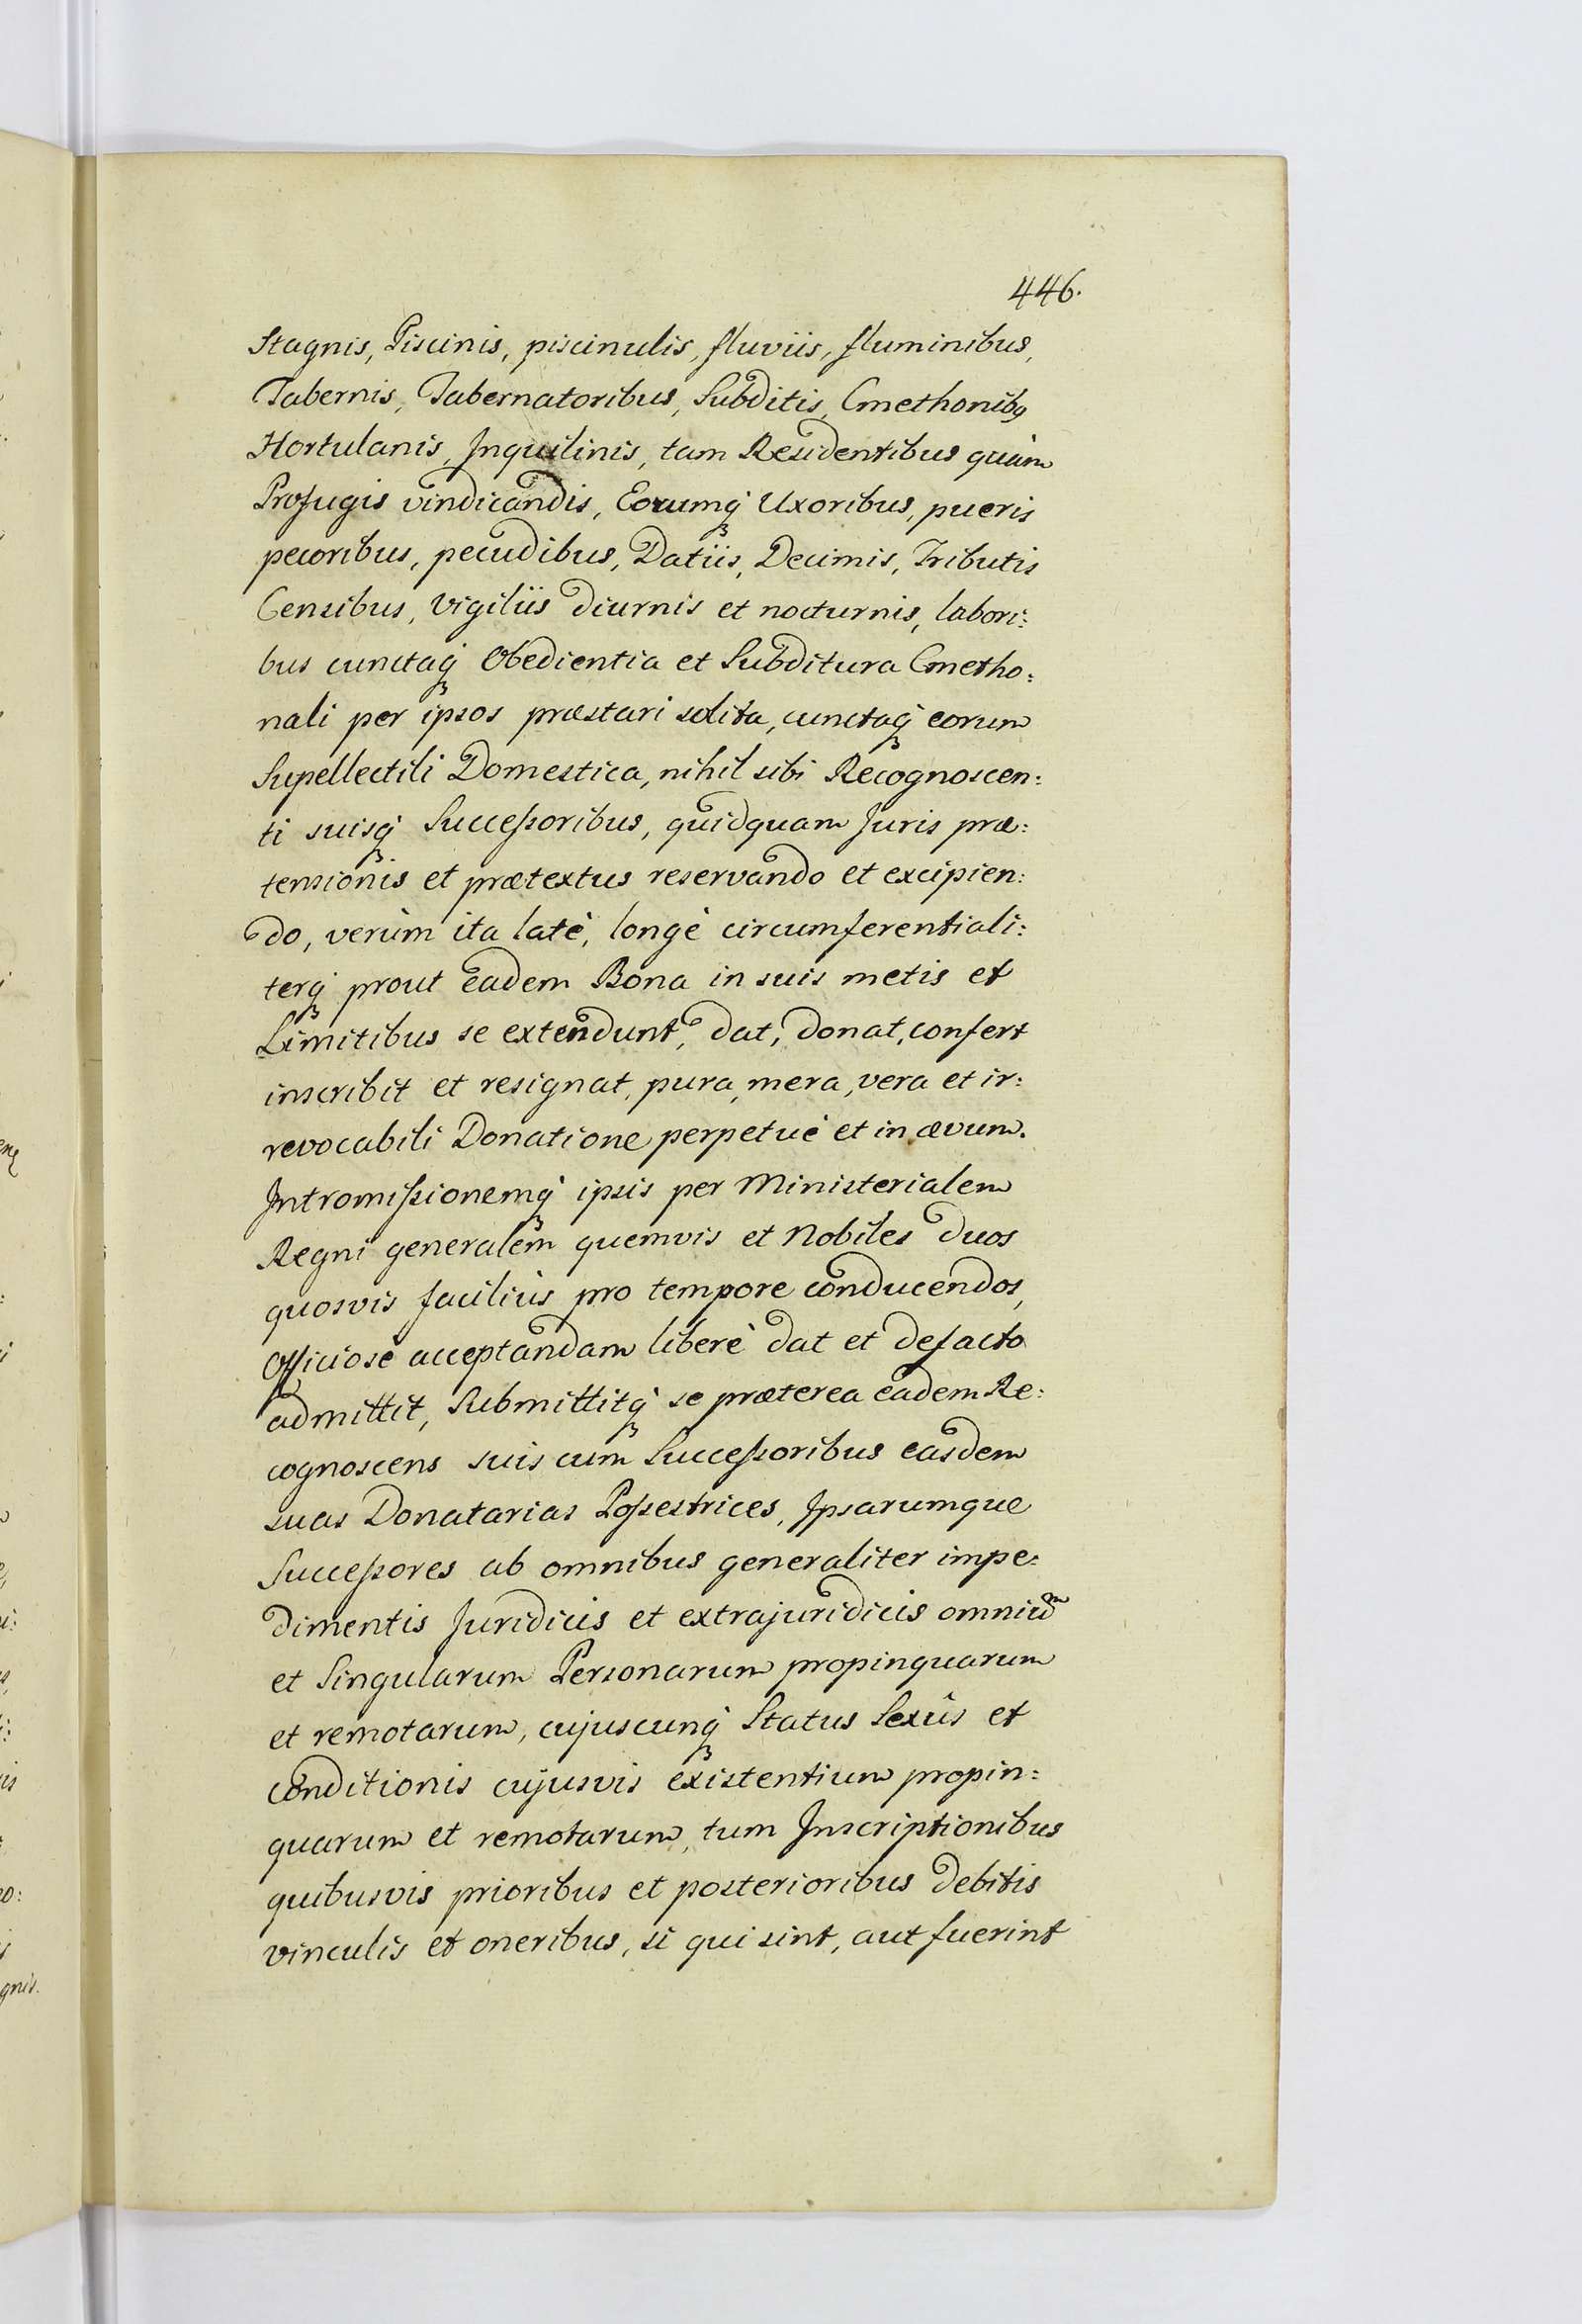 446.
Stagnis, Piscinis, piscinulis, fluviis, fluminibus,
Tabernis, Tabernatoribus, Subditis, Cmethonibꝰ
Hortulanis, Inquilinis, tam Residentibus quàm
Profugis vindicandis, Eorumq̃ Uxoribus, pueris
pecoribus, pecudibus, Datiis, Decimis, Tributis
Censibus, Vigiliis diurnis et nocturnis, labori:
bus cunctaq̃ Obedientia et Subditura Cmetho:
nali per ipsos præstari solita, cunctaq̃ eorum
Supellectili Domestica, nihil sibi Recognoscen:
ti suisq̃ Successoribus, quidquam Juris præ:
tensionis et prætextus reservando et excipien:
do, verùm ita latè, longè circumferentiali:
terq̃ prout eadem Bona in suis metis et
Limitibus se extendunt, dat, donat, confert
inscribit et resignat, pura, mera, vera et ir:
revocabili Donatione perpetuè et in ævum.
Intromissionemq̃ ipsis per Ministerialem
Regni generalem quemvis et Nobiles duos
quosvis faciliùs pro tempore conducendos,
Officiosè acceptandam liberè dat et defacto
admittit, Submittitq̃ se præterea eadem Re:
cognoscens suis cum Successoribus easdem
suas Donatarias Possestrices, Ipsarumque
Successores ab omnibus generaliter impe:
dimentis Juridicis et extrajuridicis omniũ
et Singularum Personarum propinquarum
et remotarum, cujuscunq̃ Status Sexûs et
conditionis cujusvis existentium propin:
quarum et remotarum, tum Inscriptionibus
quibusvis prioribus et posterioribus debitis
vinculis et oneribus, si qui sint, aut fuerint